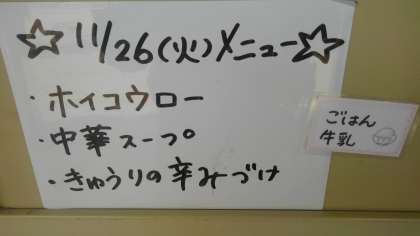 ☆11/26(火)メニュー☆
・ホイコウロー
・中華スープ
・きゅうりの辛みづけ
ごはん
牛乳